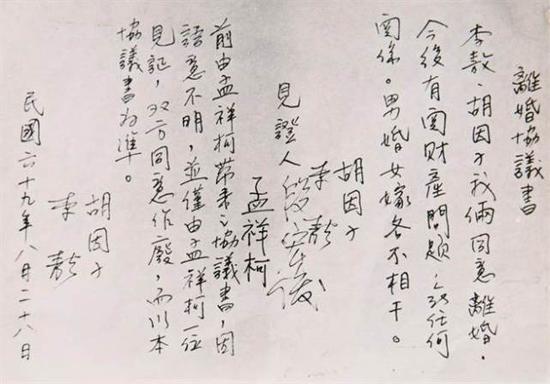 離婚協議書
李敖、胡因子我倆同意離婚,
今後有関財產問題,及任何
関係。男婚女嫁各不相干。
胡因子
李敖
見證人 段宏俊
孟祥柯
前由孟祥柯帶來之協議書,因
語意不明,並僅由孟祥柯一位
見証,双方同意作廢,而以本
協議書為準。
胡因子
李敖
民國六十九年八月二十八日